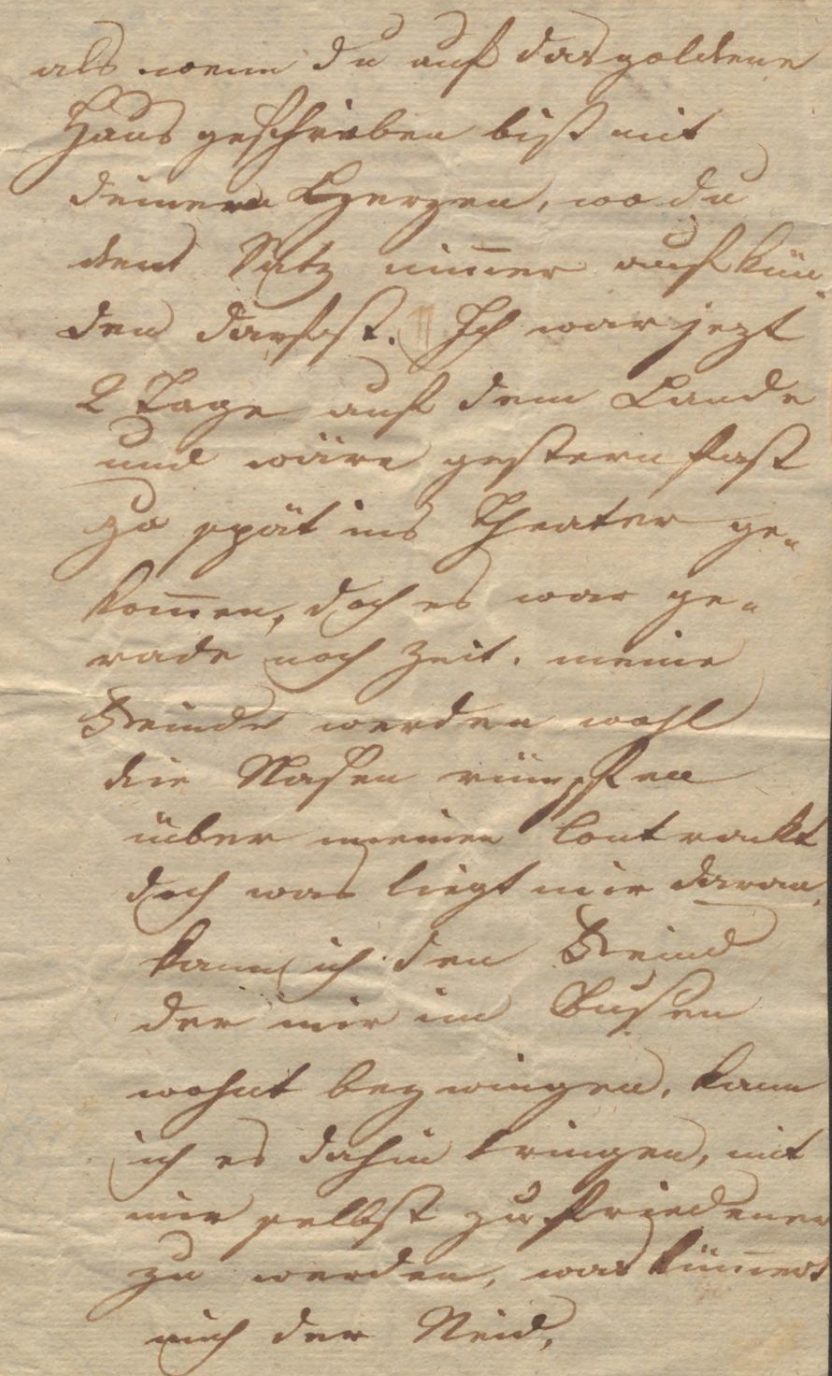 als wenn du auf das goldene
Haus geschrieben bist mit
deinem Herzen, wo du
den Satz nimmer aufkün-
den darfst. Ich war jezt
2 Tage auf dem Lande
und wäre gestern fast
zu spät ins Theater ge-
kom̅en, doch es war ge-
rade noch Zeit. meine
Feinde werden wohl
die Nasen rümpfen
über meinen Contrackt
doch was liegt mir daran,
kann ich den Feind
der mir im Busen
wohnt bezwingen, kann
ich es dahin bringen, mit
mir selbst zufriedener
zu werden, was küm̅ert
mich der Neid,